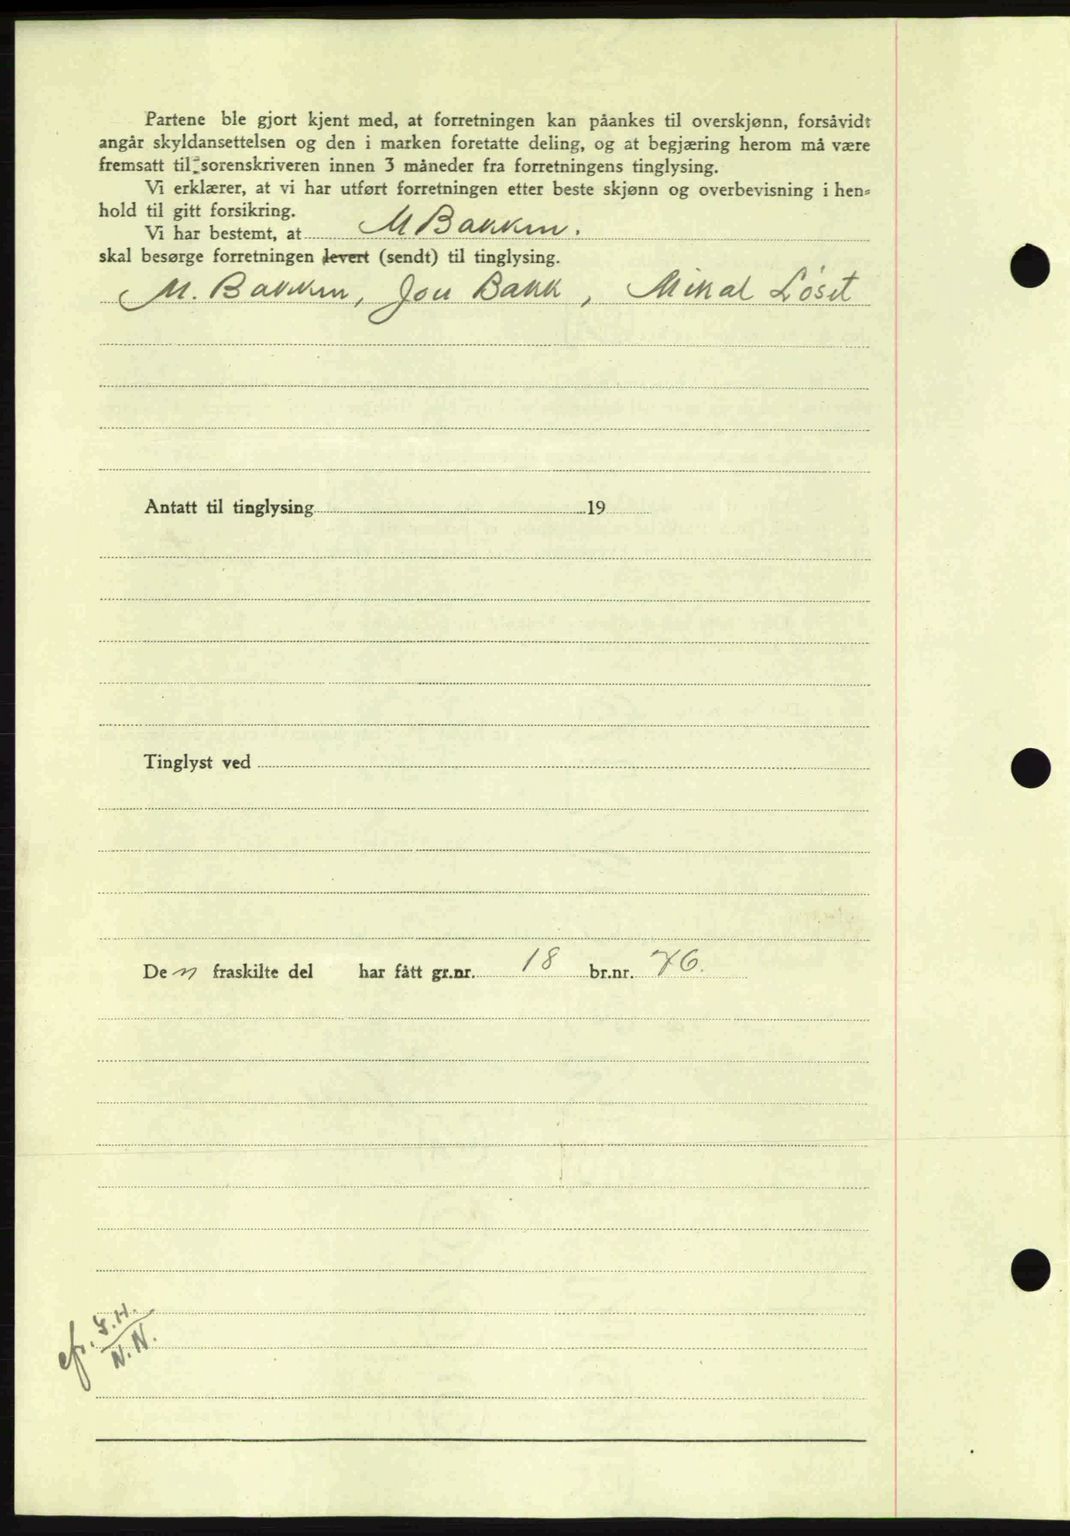 Partene ble gjort kjent med, at forretningen kan påankes til overskjønn, forsåvidt
angår skyldansettelsen og den i marken foretatte deling, og at begjæring herom må være
fremsatt til sorenskriveren innen 3 måneder fra forretningens tinglysing.
Vi erklærer, at vi har utført forretningen etter beste skjønn og overbevisning i hen=
hold til gitt forsikring.
Vi har bestemt, at M Bakken.
skal besørge forretningen levert (sendt) til tinglysing.
M. Bakken, Jon Bakk, Mikal Løset
Antatt til tinglysing 19
Tinglyst ved
De n fraskilte del har fått gr.nr. 18 br.nr. 76.
cfr. G.H.
N.N.